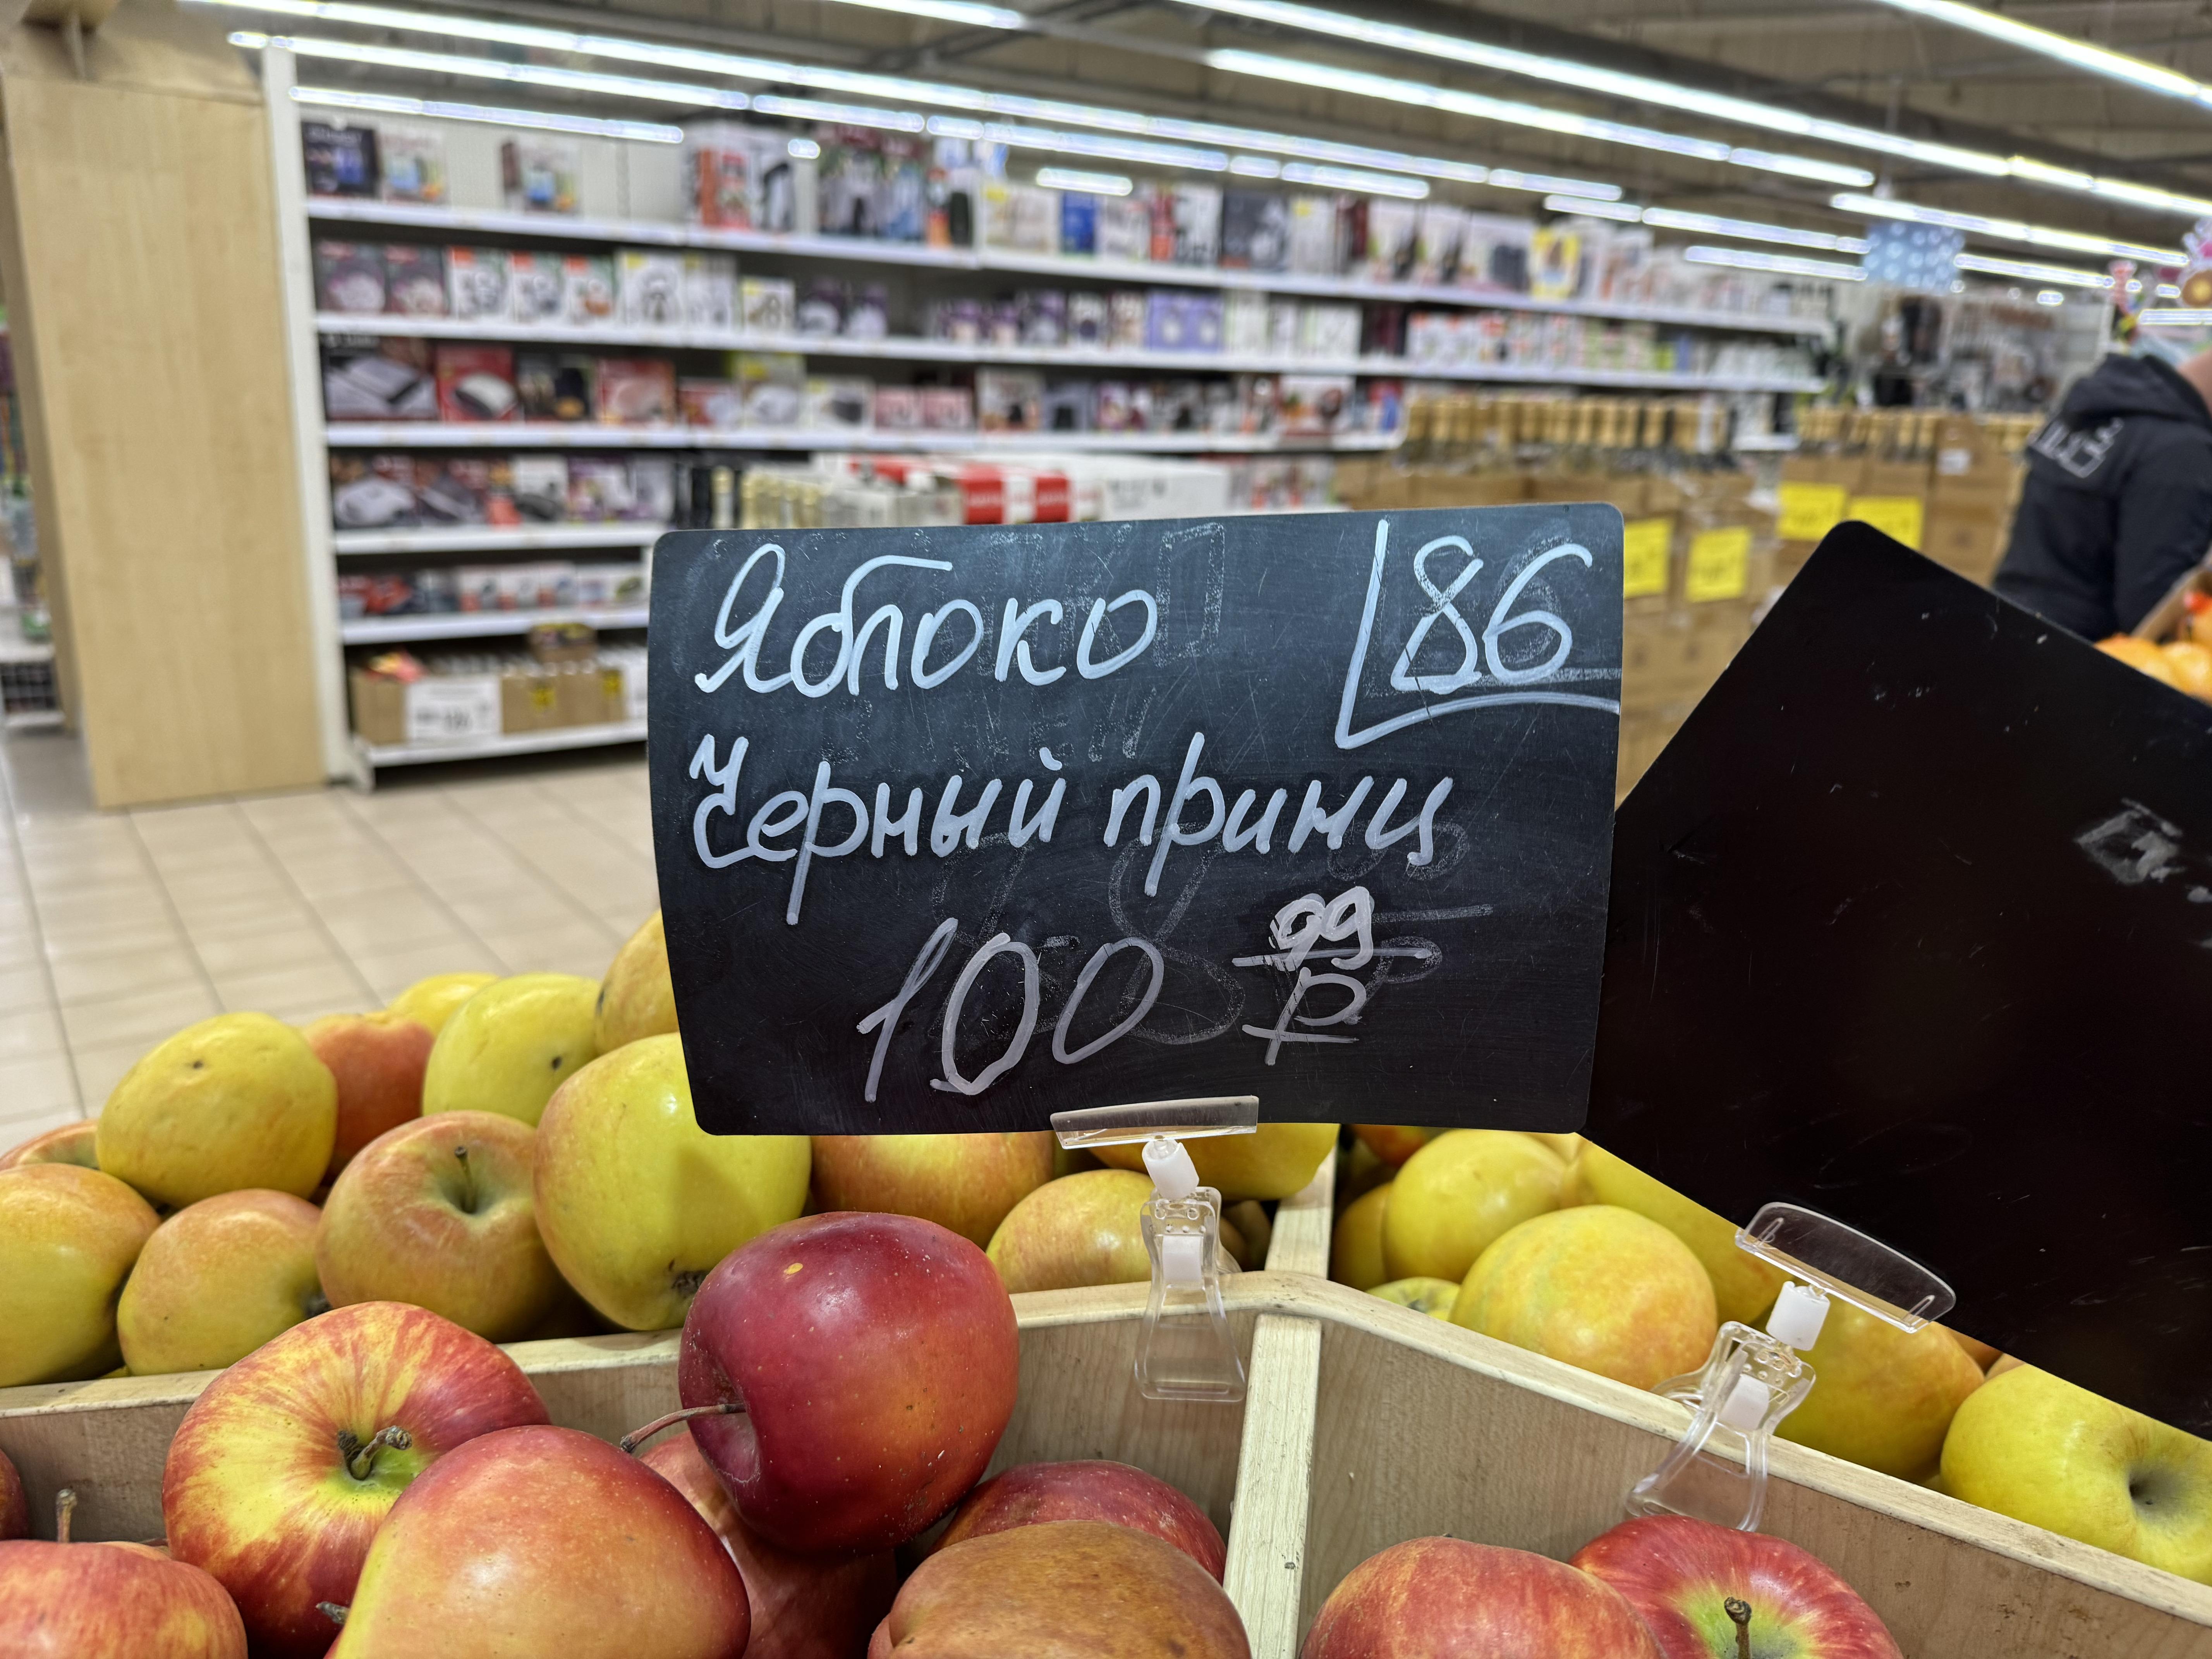 Яблоко 86
Черный принц
100 99 ₽